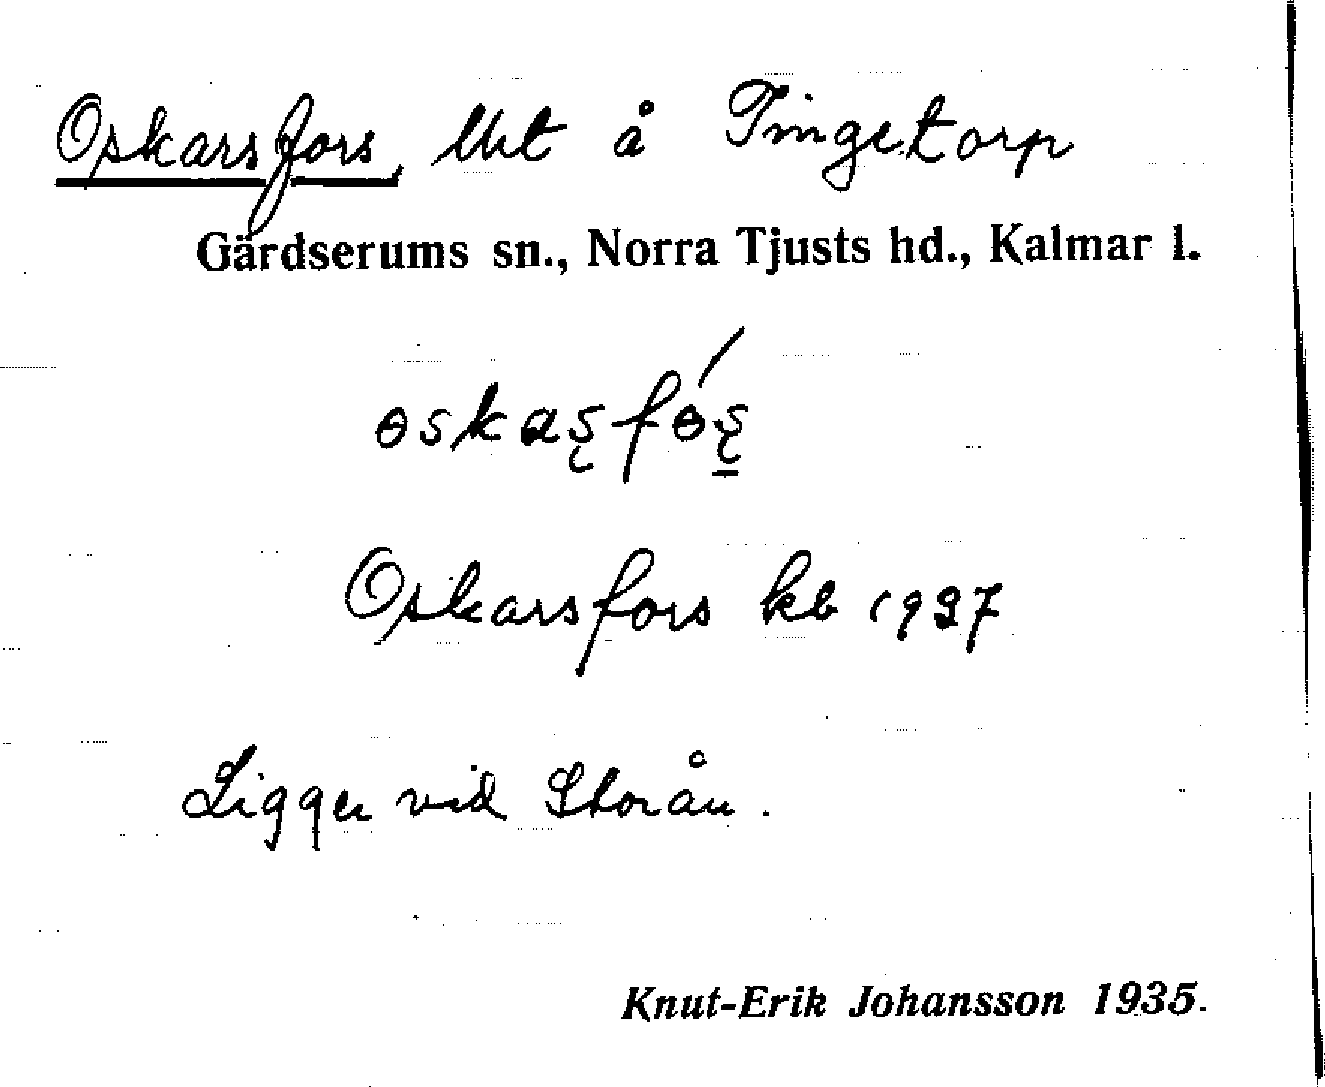 Oskarsfors, lht å Tingetorp
Gärdserums sn., Norra Tjusts hd., Kalmar l.
Oskarsfors kb 1927
Ligger vid Storån.
Knut-Erik Johansson 1935.